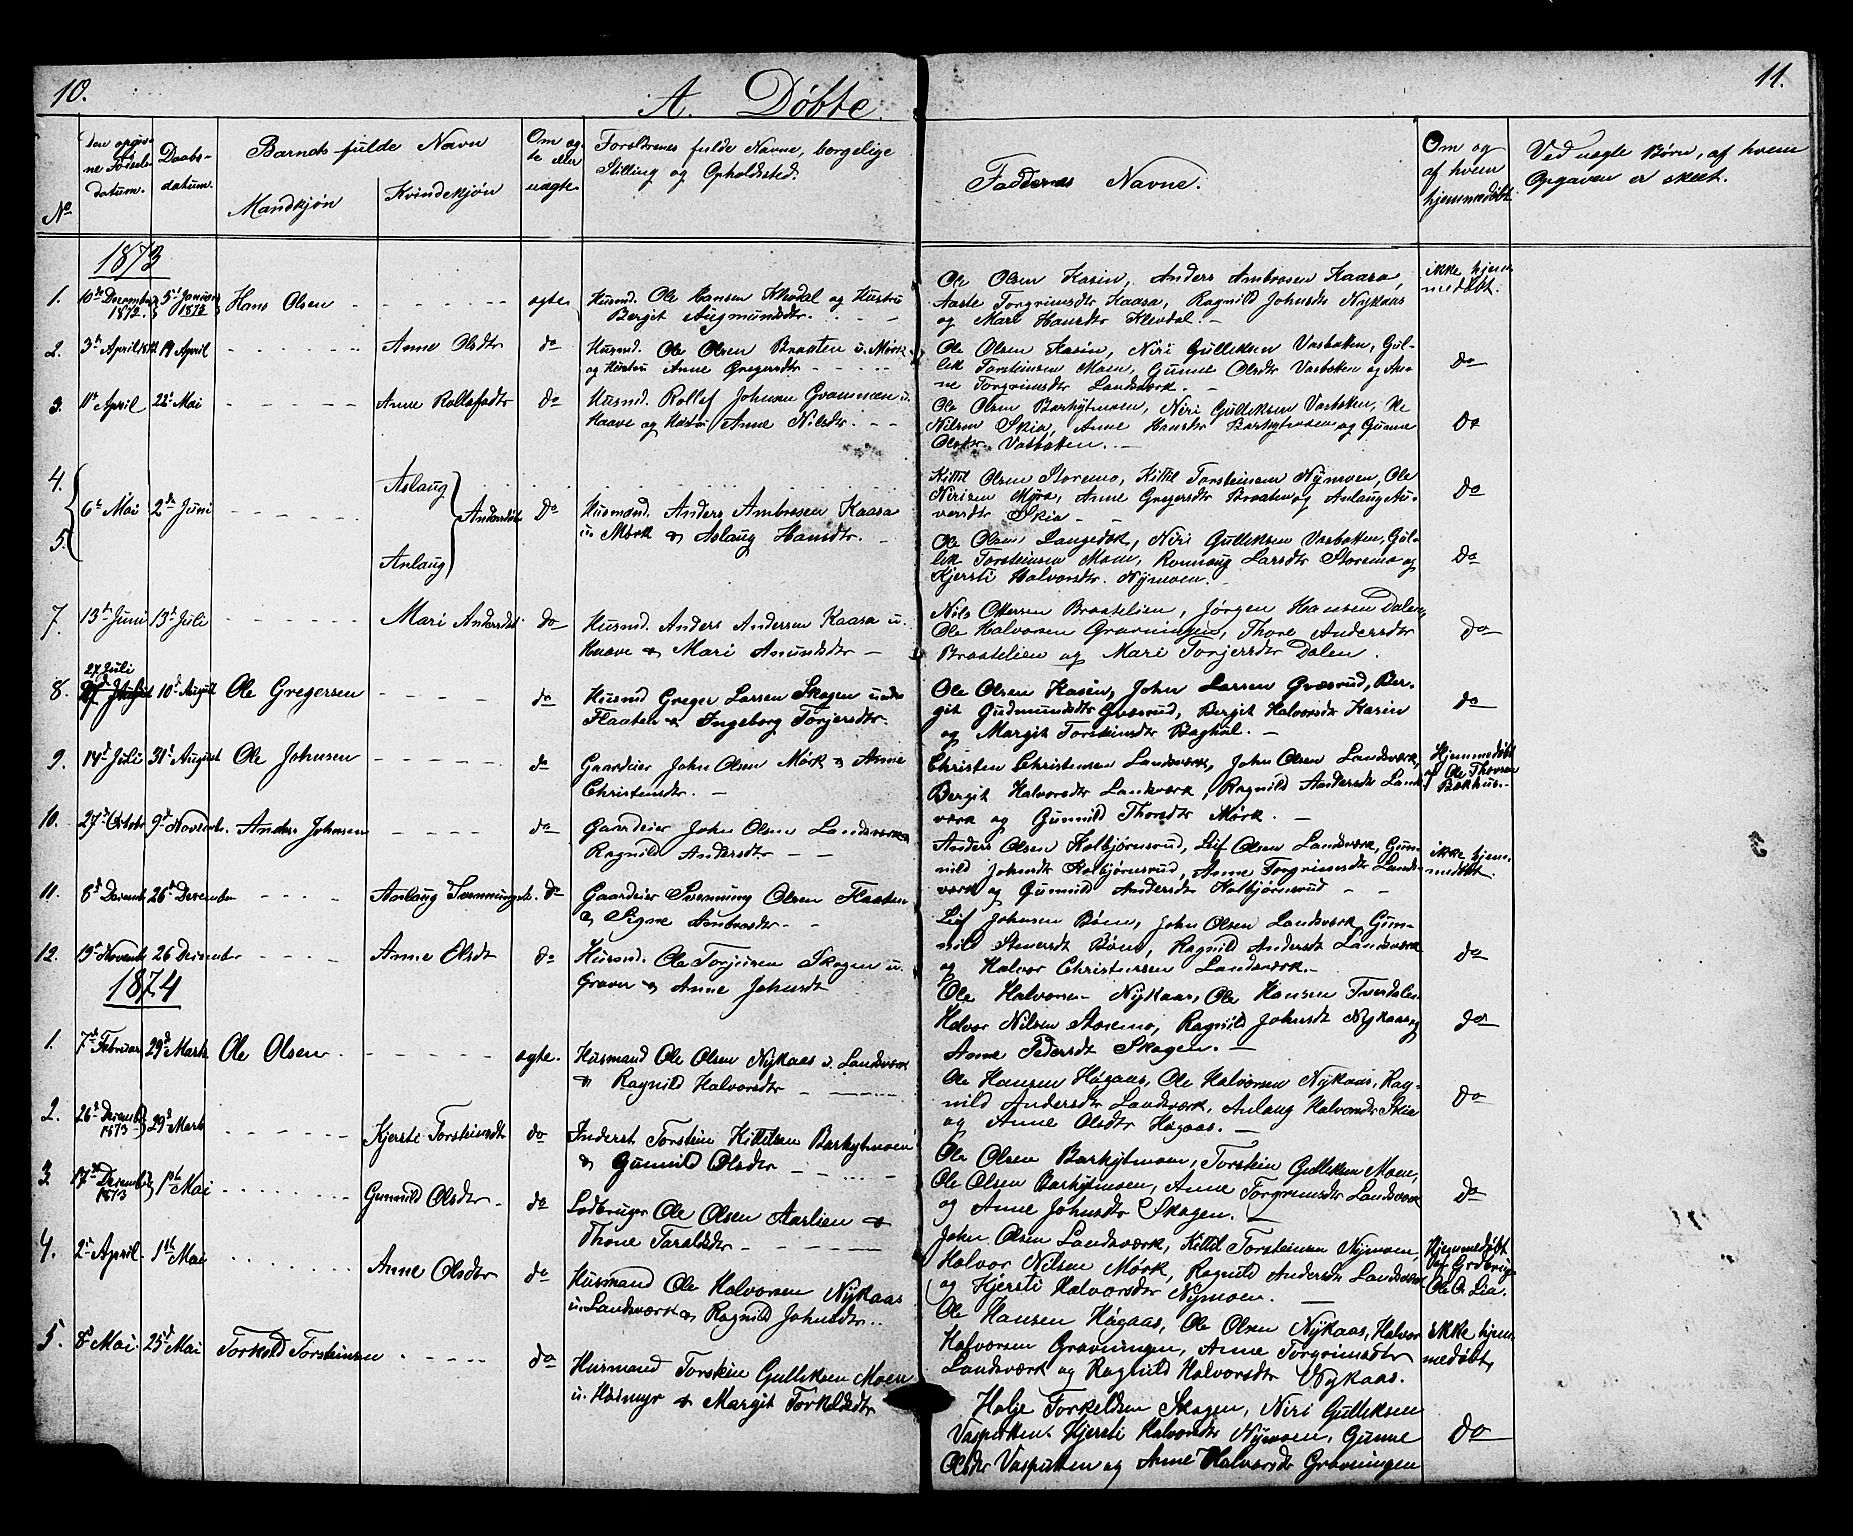 10.
A. Døbte.
11.
No
Den opgivne Fødselsdatum.
Daabsdatum.
Barnets fulde Navn
Mandkjøn
Kvindekjøn
Om ægte eller uægte
Forældrenes fulde Navne, borgelige
Stilling og Opholdssted.
Faddernes Navne.
Om og
af hvem
hjemmedøbt
Ved uægte Børn, af hvem
Opgaven er skeet.
1873
1. 10de December 1872. 5te Januar 1873 Hans Olsen ægte Husmd. Ole Hansen Klevdal og Hustru
Bergit Augmundsdtr.
Ole Olsen Kasin, Anders Ambrosen Kaasa,
Aaste Torgrimsdtr Kaasa, Ragnild Johnsdtr Nykaas
og Mari Hansdtr Klevdal.
ikke hjemmedøbt.
2. 3de April 19 April Anne Olsdtr do Husmd. Ole Olsen Braaten u. Mørk
og Hustru Anne Gregersdtr
Ole Olsen Kasin, Niri Gulliksen Vasbakken, Gullik
Torsteinsen Moen, Gunne Olsdtr Vasbakken og Anne
Torgrimsdtr Landsværk.
do
3. 11te April 22de Mai Anne Rollefsdtr do Husmd. Rollef Johnsen Gvammen u.
Haave og Hustru Anne Nilsdtr.
Ole Olsen Barhytmoen, Niri Gulliksen Vasbakken, Ole
Nilsen Skia, Anne Hansdtr Barhytmoen og Gunne
Olsdtr Vasbakken.
do
4.
5.
6te Mai 2den Juni Aslaug
Anlaug
Andersdtr do Husmand. Anders Ambrosen Kaasa
u. Mørk & Aslaug Hansdtr.
Kittil Olsen Storemo, Kittil Torsteinsen Nymoen, Ole
Nirisen Myra, Anne Gregersdtr Braaten og Anlaug
Skia
do
Ole Olsen Langedok, Niri Gulliksen Vasbakken, Gullik
Torsteinsen Moen, Ronnaug Larsdtr Storemo og
Kjersti Halvorsdtr. Nymoen.
do
7. 13de Juni 13de Juli Mari Andersdtr do Husmd. Anders Andersen Kaasa u.
Haave & Mari Amundsdtr
Nils Ottersen Braatelien, Jørgen Hansen Dalen,
Ole Halvorsen Gravningen, Thore Andersdtr
Braatelien og Mari Torjersdtr Dalen.
do
8. 27 Juli 10de August Ole Gregersen do Husmd Greger Larsen Skogen under
Flaaten & Ingeborg Torjersdtr.
Ole Olsen Kasin, John Larsen Gvæsrud, Bergit
Gudmundsdtr Gvæsrud, Bergit Halvorsdtr Kasin
og Margit Torsteinsdtr Baghul.
do
9. 14de Juli 31te August Ole Johnsen do Gaardeier John Olsen Mørk & Anne
Christensdtr.
Christen Christensen Landsværk, John Olsen Landsværk,
Bergit Halvorsdtr Landsværk, Ragnild Andersdtr Landsværk
og Gunnild Thorsdtr Mørk.
Hjemmedøbt
af Ole Thovsen
Bakhus.
10. 27de Octobr 9de Novembr. Anders Johnsen do Gaardeier John Olsen Landsværk &
Ragnild Andersdtr
Anders Olsen Kolbjørnsrud, Leif Olsen Landsværk, Gunnild
Johnsdtr Kolbjørnsrud, Anne Torgrimsdtr Landsværk
og Gunnild Andersdtr Kolbjørnsrud
ikke hjemmedøbt.
11. 8de Decembr 26de December Anlaug Svenningsdtr. do Gaardeier Svenning Olsen Flaaten
& Signe Ambrosdtr
Leif Johnsen Bøen, John Olsen Landsværk, Gunnild
Stenersdt Bøen, Ragnild Andersdt Landsværk
og Halvor Christensen Landsværk.
do
12. 19de Novembr 26 December Anne Olsdt do Husmd. Ole Torjusen Skogen u.
Graver & Anne Johnsdt
Ole Halvorsen Nykaas, Ole Hansen Tverdalen
Halvor Nilsen Storemo, Ragnild Johnsdt Nykaas og
Anne Pedersdt Skogen.
do
1874
1. 7de Februar 29de Marts Ole Olsen ægte. Husmand Ole Olsen Nykaas u. Landsværk
& Ragnild Halvorsdtr
Ole Hansen Høgaas, Ole Halvorsen Nykaas, Ragnild
Andersdtr Landsværk, Anlaug Halvorsdtr Skia
og Anne Olsdtr Høgaas.
do
2. 26de December 1873 29de Marts Kjersti Torsteinsdtr do Inderst Torstein Kittilsen Barhytmoen
& Gunnild Olsdtr
Ole Olsen Barhytmoen, Torstein Gulliksen Moen,
Ole Olsen Barhytmoen, Anne Torgrimsdtr Landsværk
og Anne Johnsdtr Skogen.
do
3. 17de December 1873 1ste Mai Gunnild Olsdtr do Lodbruger Ole Olsen Aarlien &
Thone Taraldsdtr
John Olsen Landsværk, Kittil Torsteinsen Nymoen,
Halvor Nilsen Mørk, Ragnild Andersdt Landsværk
og Kjersti Halvorsdtr Nymoen.
Hjemmedøbt
af Grdbrug.
Ole O. Lia.
4. 2de April 1ste Mai Anne Olsdtr do Husmand Ole Halvorsen Nykaas
u. Landsværk & Ragnild Johnsdtr.
Ole Hansen Høgaas, Ole Olsen Nykaas, Halvor
Halvorsen Gravningen, Anne Torgrimsdtr
Landsværk og Ragnild Halvorsdtr Nykaas.
ikke hjemmedøbt,
5. 8de Mai 25de Mai Torkild Torsteinsen do Husmand Torstein Gulliksen Moen
u. Haamyr & Margit Torkildsdtr
Holje Torkeldsen Skogen, Niri Gulliksen
Vaspakken. Kjersti Halvorsdtr Nymoen, Gunne
Olsdtr Vaspakken og Anne Halvorsdtr Gravningen
do